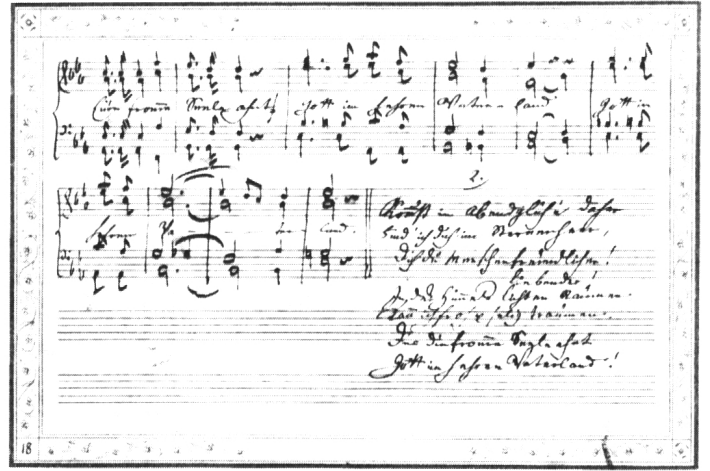 Eure fromme Seele ahnt Gott im hehren Vaterland Gott im
hehren Va ter land.
2.
Kommst im Abendglühn daher
Find' ich dich im Sternenheer,
Dich du Menschenfreundlicher!
Liebender!
In des Himmels lichten Räumen
Kann ich froh u. selig träumen.
die fromme Seele ahnt
Gott im hehren Vaterland!
18